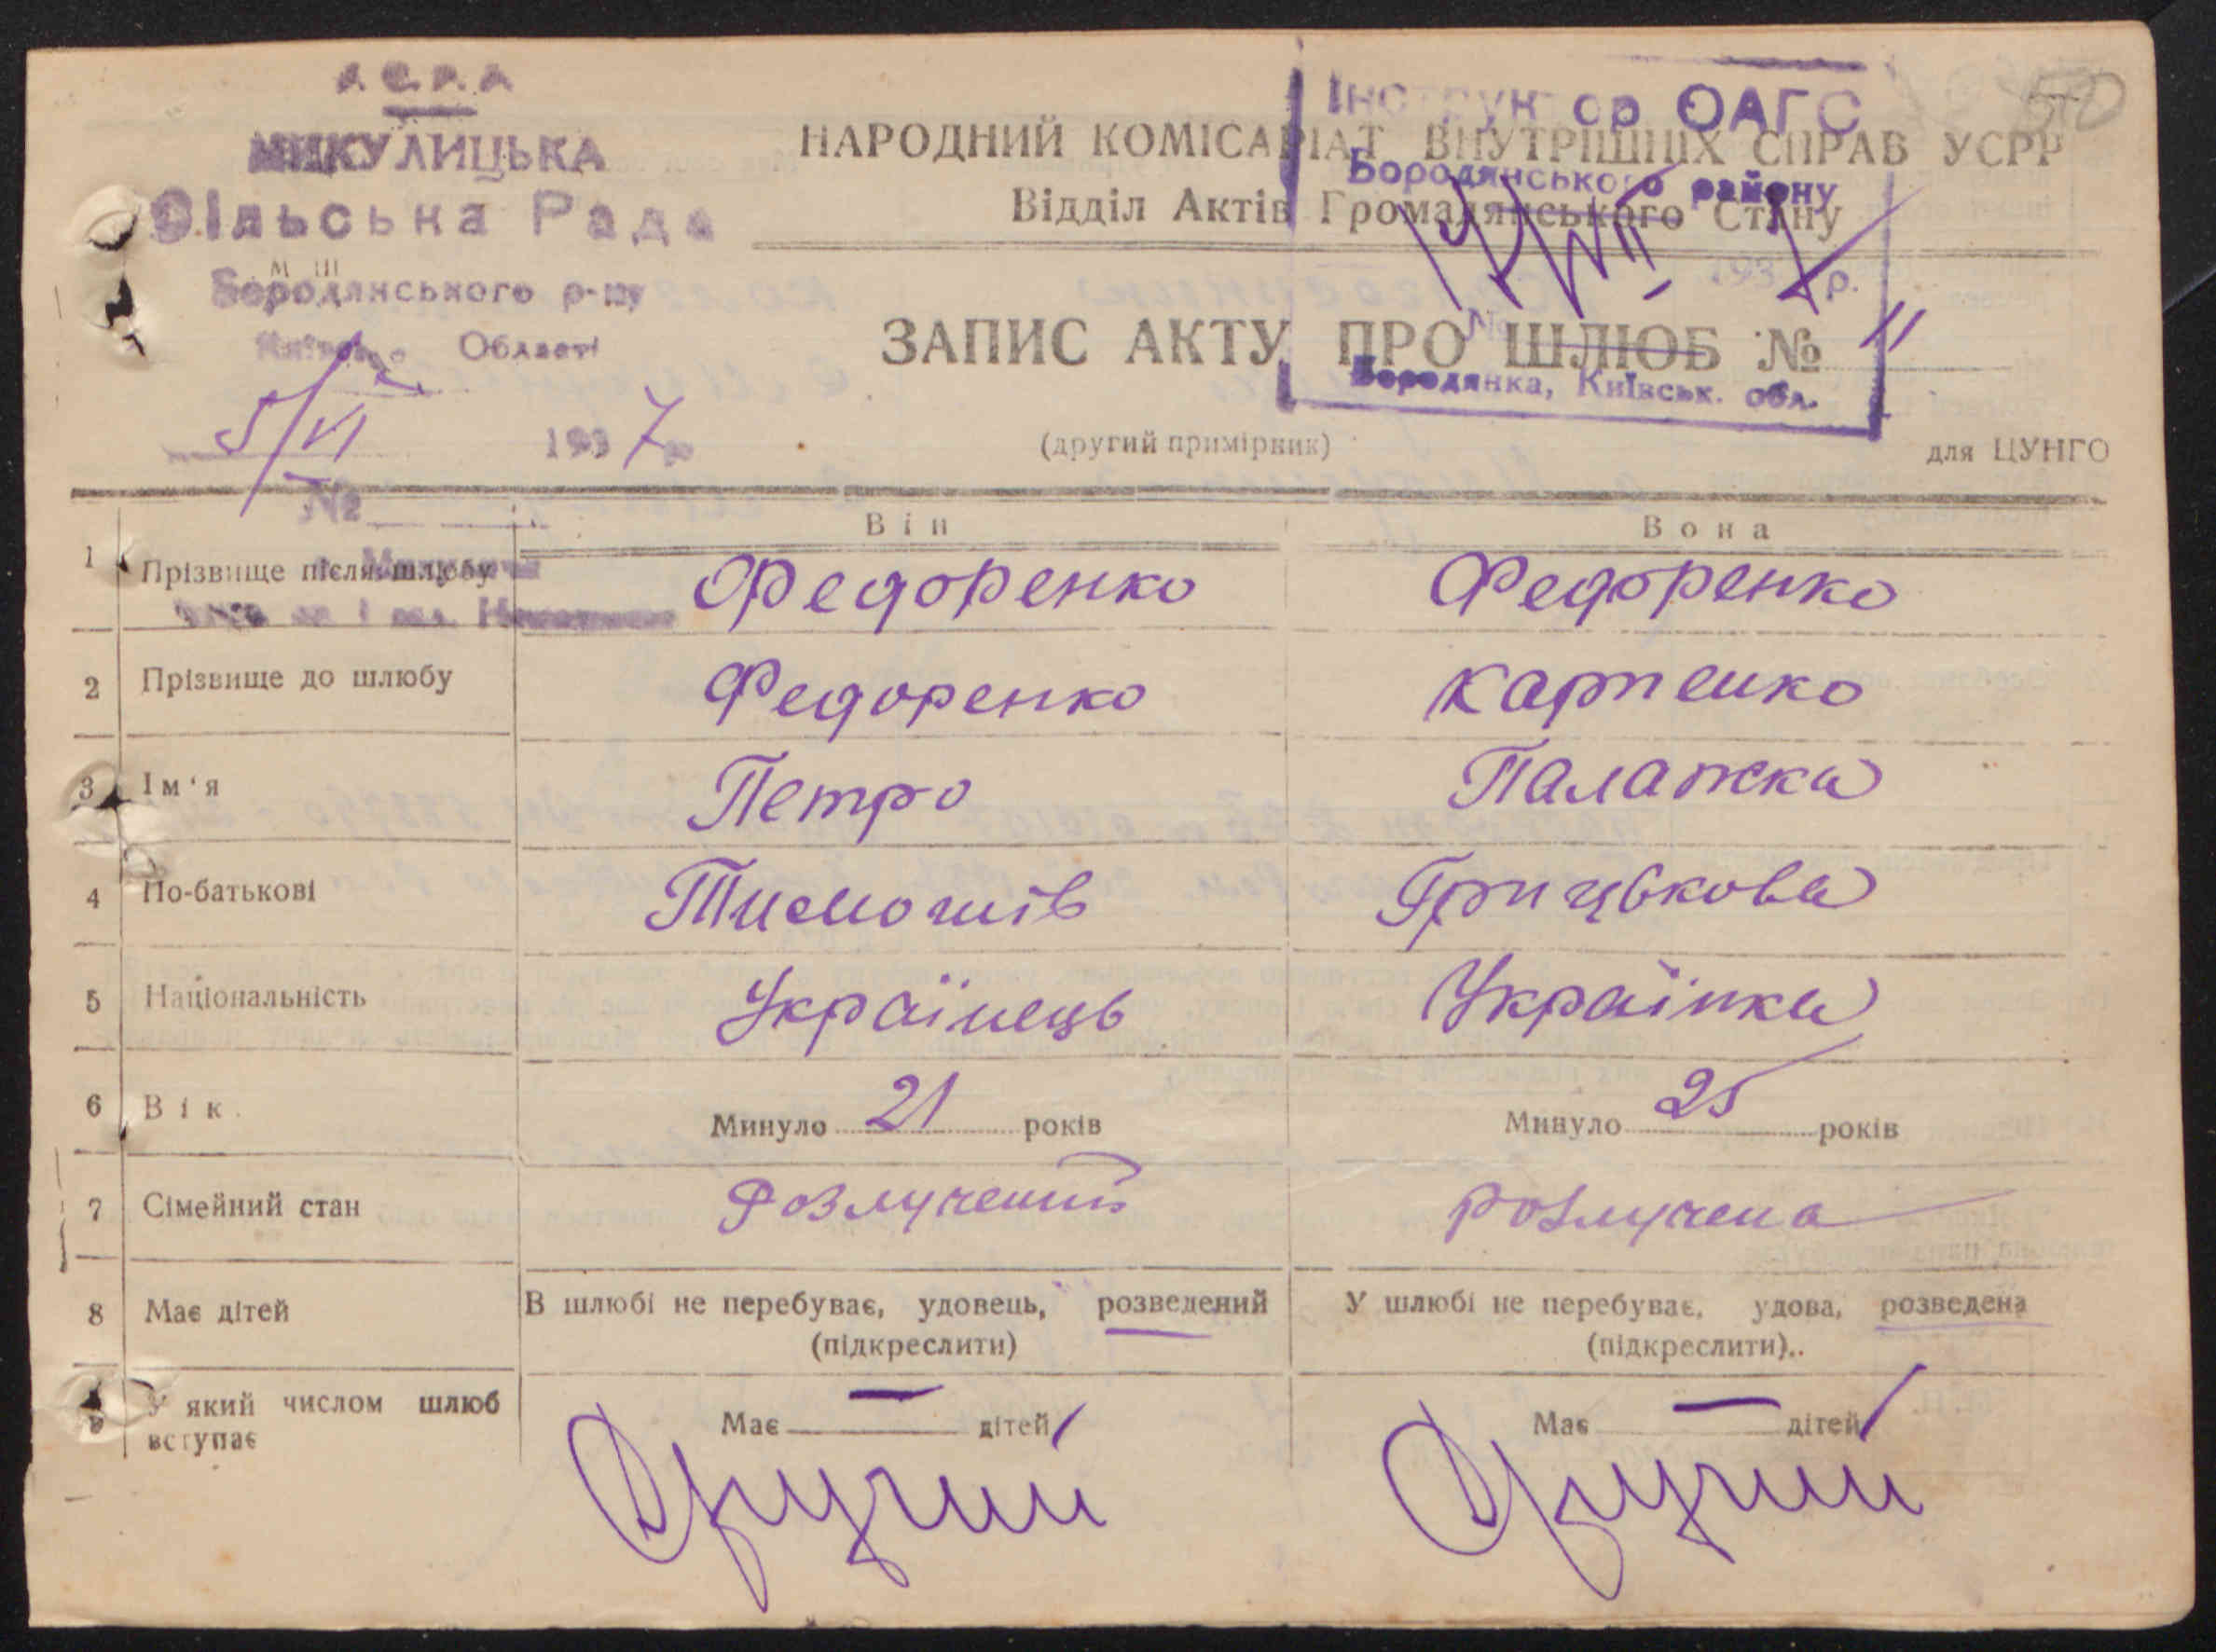 МИКУЛИЦЬКА
Сільська Рада
Бородянського р-ну
Області
5/VI 1937
№
Інструктор ОАГС
Бородянського району
193 р.
Бородянка, Київськ. обл.
НАРОДНИЙ КОМІСАРІАТ ВНУТРІШНІХ СПРАВ УСРР
Відділ Актів Громадянського Стану
ЗАПИС АКТУ ПРО ШЛЮБ № 11
(другий примірник)
для ЦУНГО
Він Вона
1 Прізвище після шлюбу Федоренко Федоренко
2 Прізвище до шлюбу Федоренко Карпенко
3 Ім'я Петро Палажка
4 По-батькові Тимошів Грицькова
5 Національність Українець Українка
6 Вік. Минуло 21 років Минуло 25 років
7 Сімейний стан Розлучений розлучена
8 Має дітей В шлюбі не перебуває, удовець, розведений У шлюбі не перебуває, удова, розведена
(підкреслити) (підкреслити)..
У який числом шлюб Має — дітей Має — дітей
вступає Другий Другий